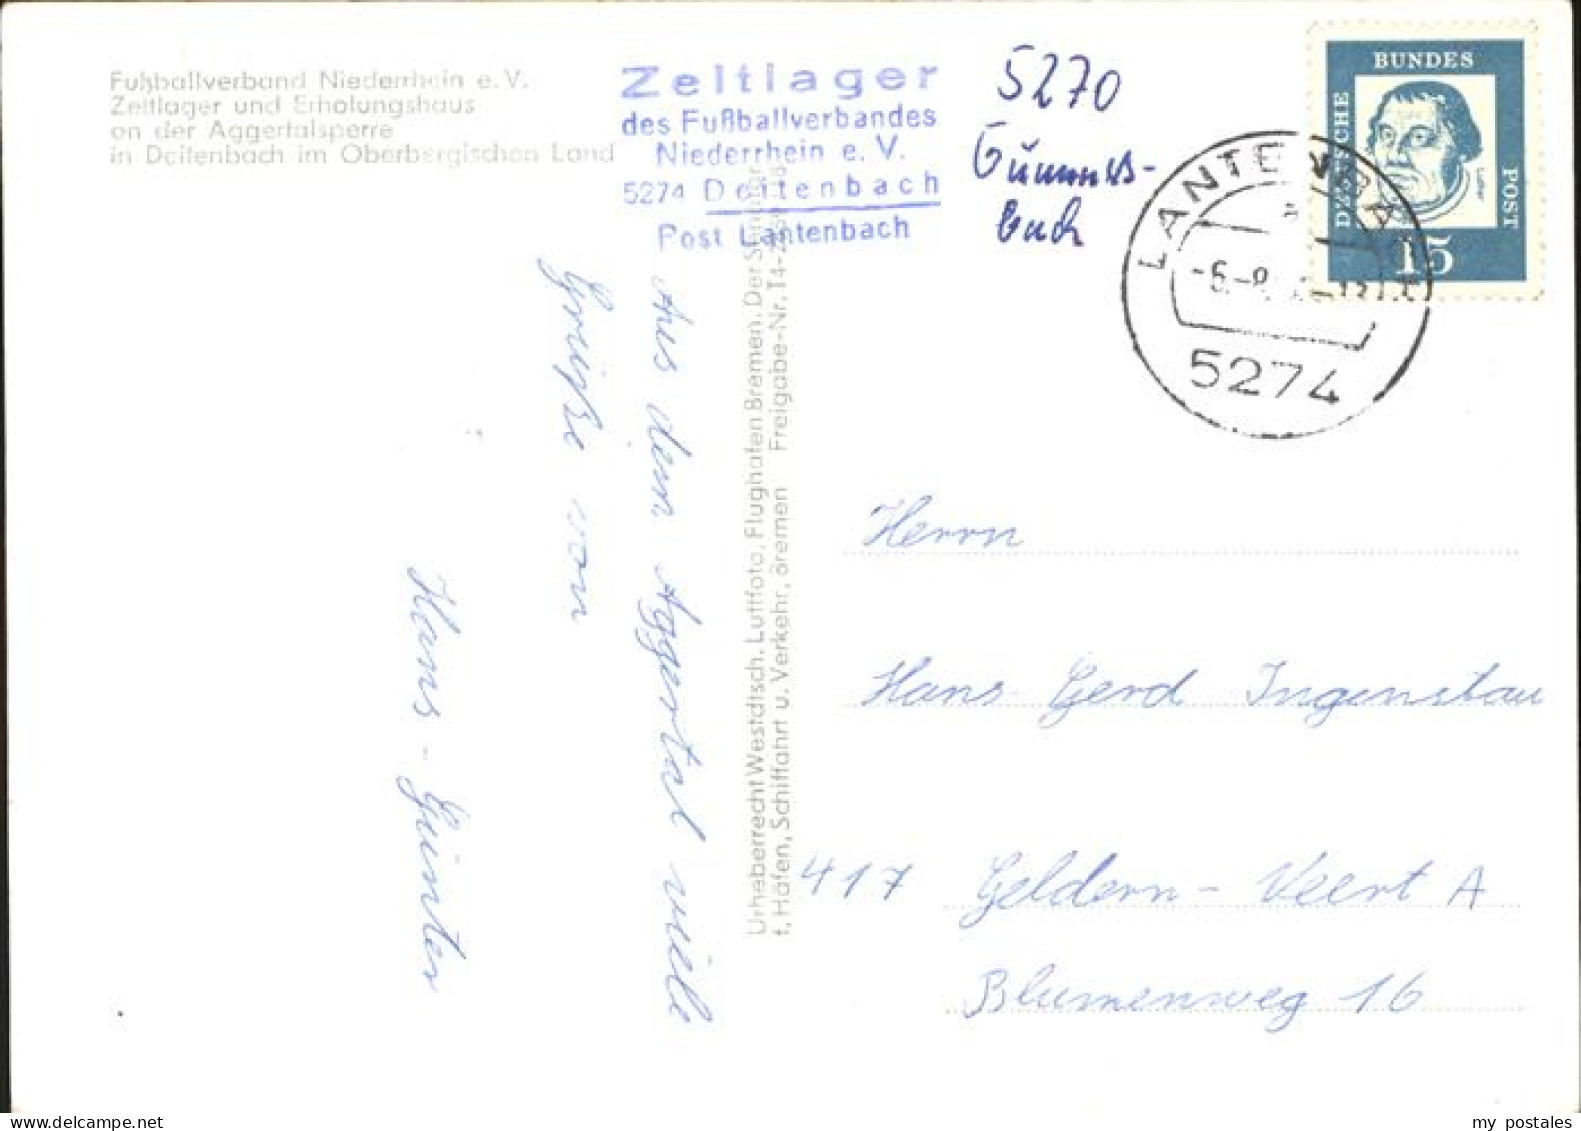 Fußballverband Niederrhein e. V.
Zeltlager und Erholungshaus
an der Aggertalsperre
in Deitenbach im Oberbergischen Land
Zeltlager
des Fußballverbandes
Niederrhein e. V.
5274 Deitenbach
Post Lantenbach
5270
Gummers-
bach
DEUTSCHE
BUNDES
POST
Luther
15
LANTENBACH
a
-6.-8.
5274
Aus dem Aggertal viele
Grüße von
Hans-Günter
Urheberrecht Westdtsch. Luftfoto, Flughafen Bremen. Der Senator
f. Häfen, Schiffahrt u. Verkehr, Bremen Freigabe-Nr.
Herrn
Hans-Gerd Ingenstau
417 Geldern-Veert A
Blumenweg 16
my postales